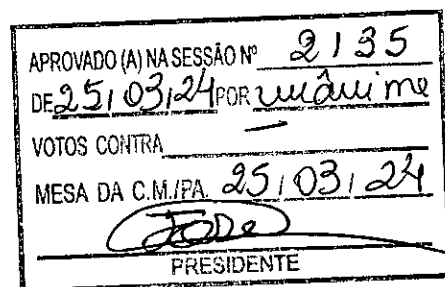 APROVADO (A) NA SESSÃO Nº 2135
DE 25/03/24 POR unânime
VOTOS CONTRA —
MESA DA C.M./PA. 25/03/24
PRESIDENTE